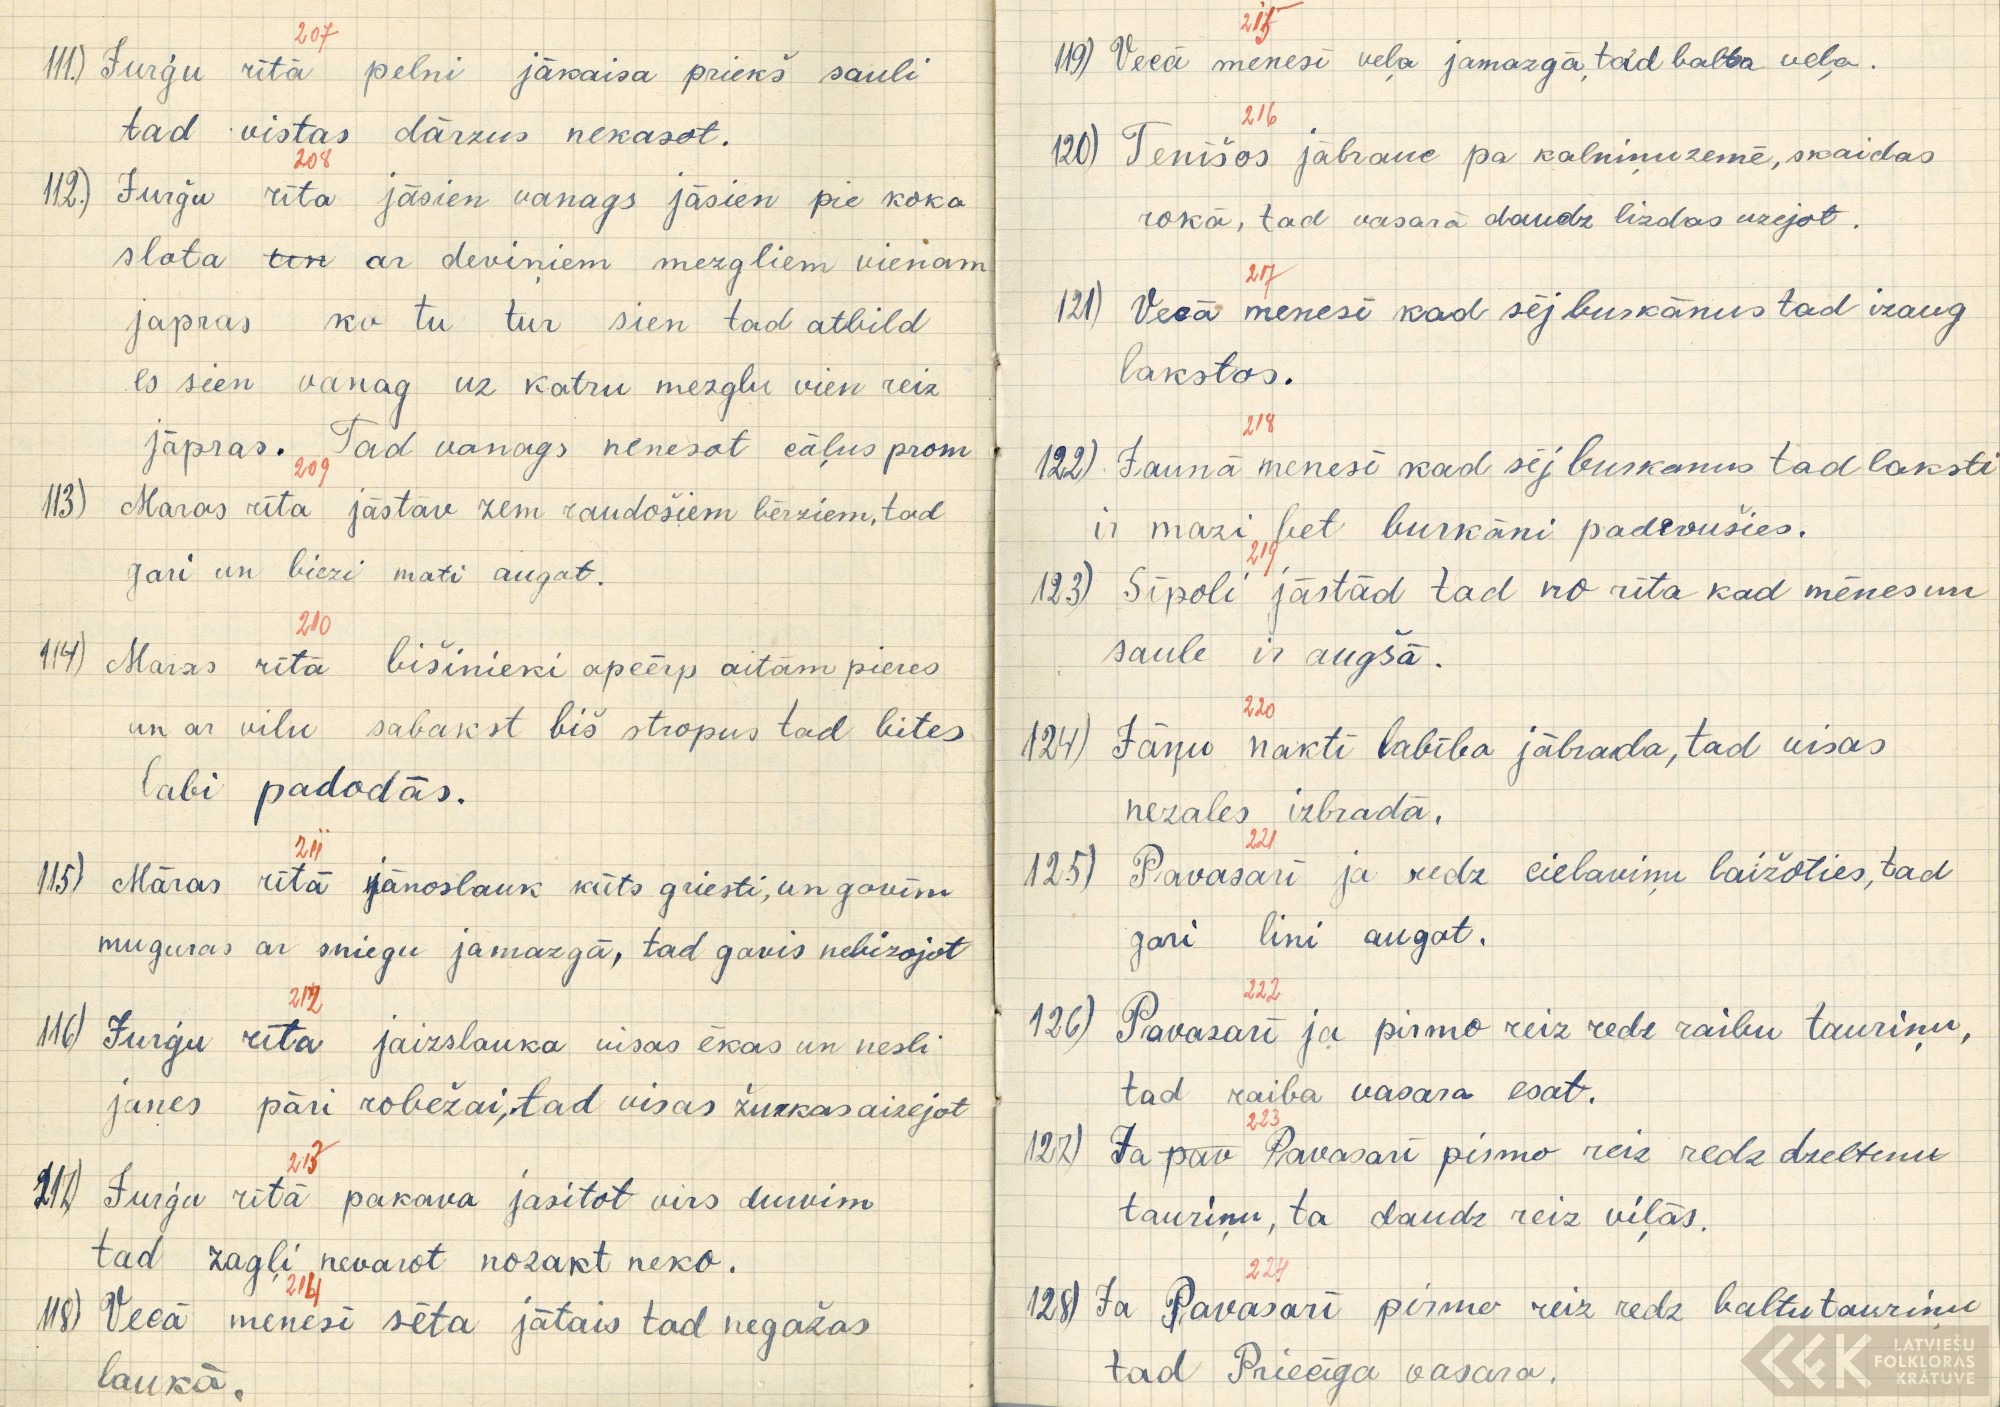 207
111.) Jurģu rītā pelni jākaisa priekš sauli
tad vistas dārzus nekasot.
208
112.) Jurģu rīta jāsien vanags jāsien pie koka
slota un ar deviņiem mezgliem vienam
japras ko tu tur sien tad atbild
es sien vanag uz katru mezglu vien reiz
jāpras. Tad vanags nenesot cāļus prom
209
113) Maras rīta jāstāv zem raudošiem bērziem, tad
gari un biezi mati augot.
210
114) Maras rītā bišinieki apcērp aitām pieres
un ar vilu sabakst biš stropus tad bites
labi padodās.
211
115) Māras rītā jānoslauk kūts griesti, un govīm
muguras ar sniegu jamazgā, tad govis nebizojot
212
116) Jurģu rīta jaizslauka visas ēkas un nesli
janes pāri robežai, tad visas žurkas aizejot
213
117) Jurģu rītā pakava jasitot virs durvim
tad zagļi nevarot nozakt neko.
214
118) Vecā menesī sēta jātais tad negažas
laukā.
215
119) Vecā menesī veļa jamazgā, tad balta veļa.
216
120) Tenīšos jābrauc pa kalniņu zemē, skaidas
rokā, tad vasarā daudz lizdas uzejot.
217
121) Vecā menesī kad sēj burkānus tad izaug
lakstos.
218
122) Jaunā menesī kad sēj burkanus tad laksti
ir mazi bet burkāni padevušies.
219
123) Sīpoli jāstād tad no rīta kad mēnes un
saule ir augšā.
220
124) Jāņu naktī labība jābrada, tad visas
nezales izbradā.
221
125) Pavasarī ja redz cielaviņu laižoties, tad
gari lini augot.
222
126) Pavasarī ja pirmo reiz redz raibu tauriņu,
tad raiba vasara esat.
223
127) Ja pav Pavasarī pirmo reiz redz dzeltenu
tauriņu, ta daudz reiz viļās.
224
128) Ja Pavasarī pirmo reiz redz baltu tauriņu
tad Priecīga vasara.
LFK LATVIEŠU
FOLKLORAS
KRĀTUVE